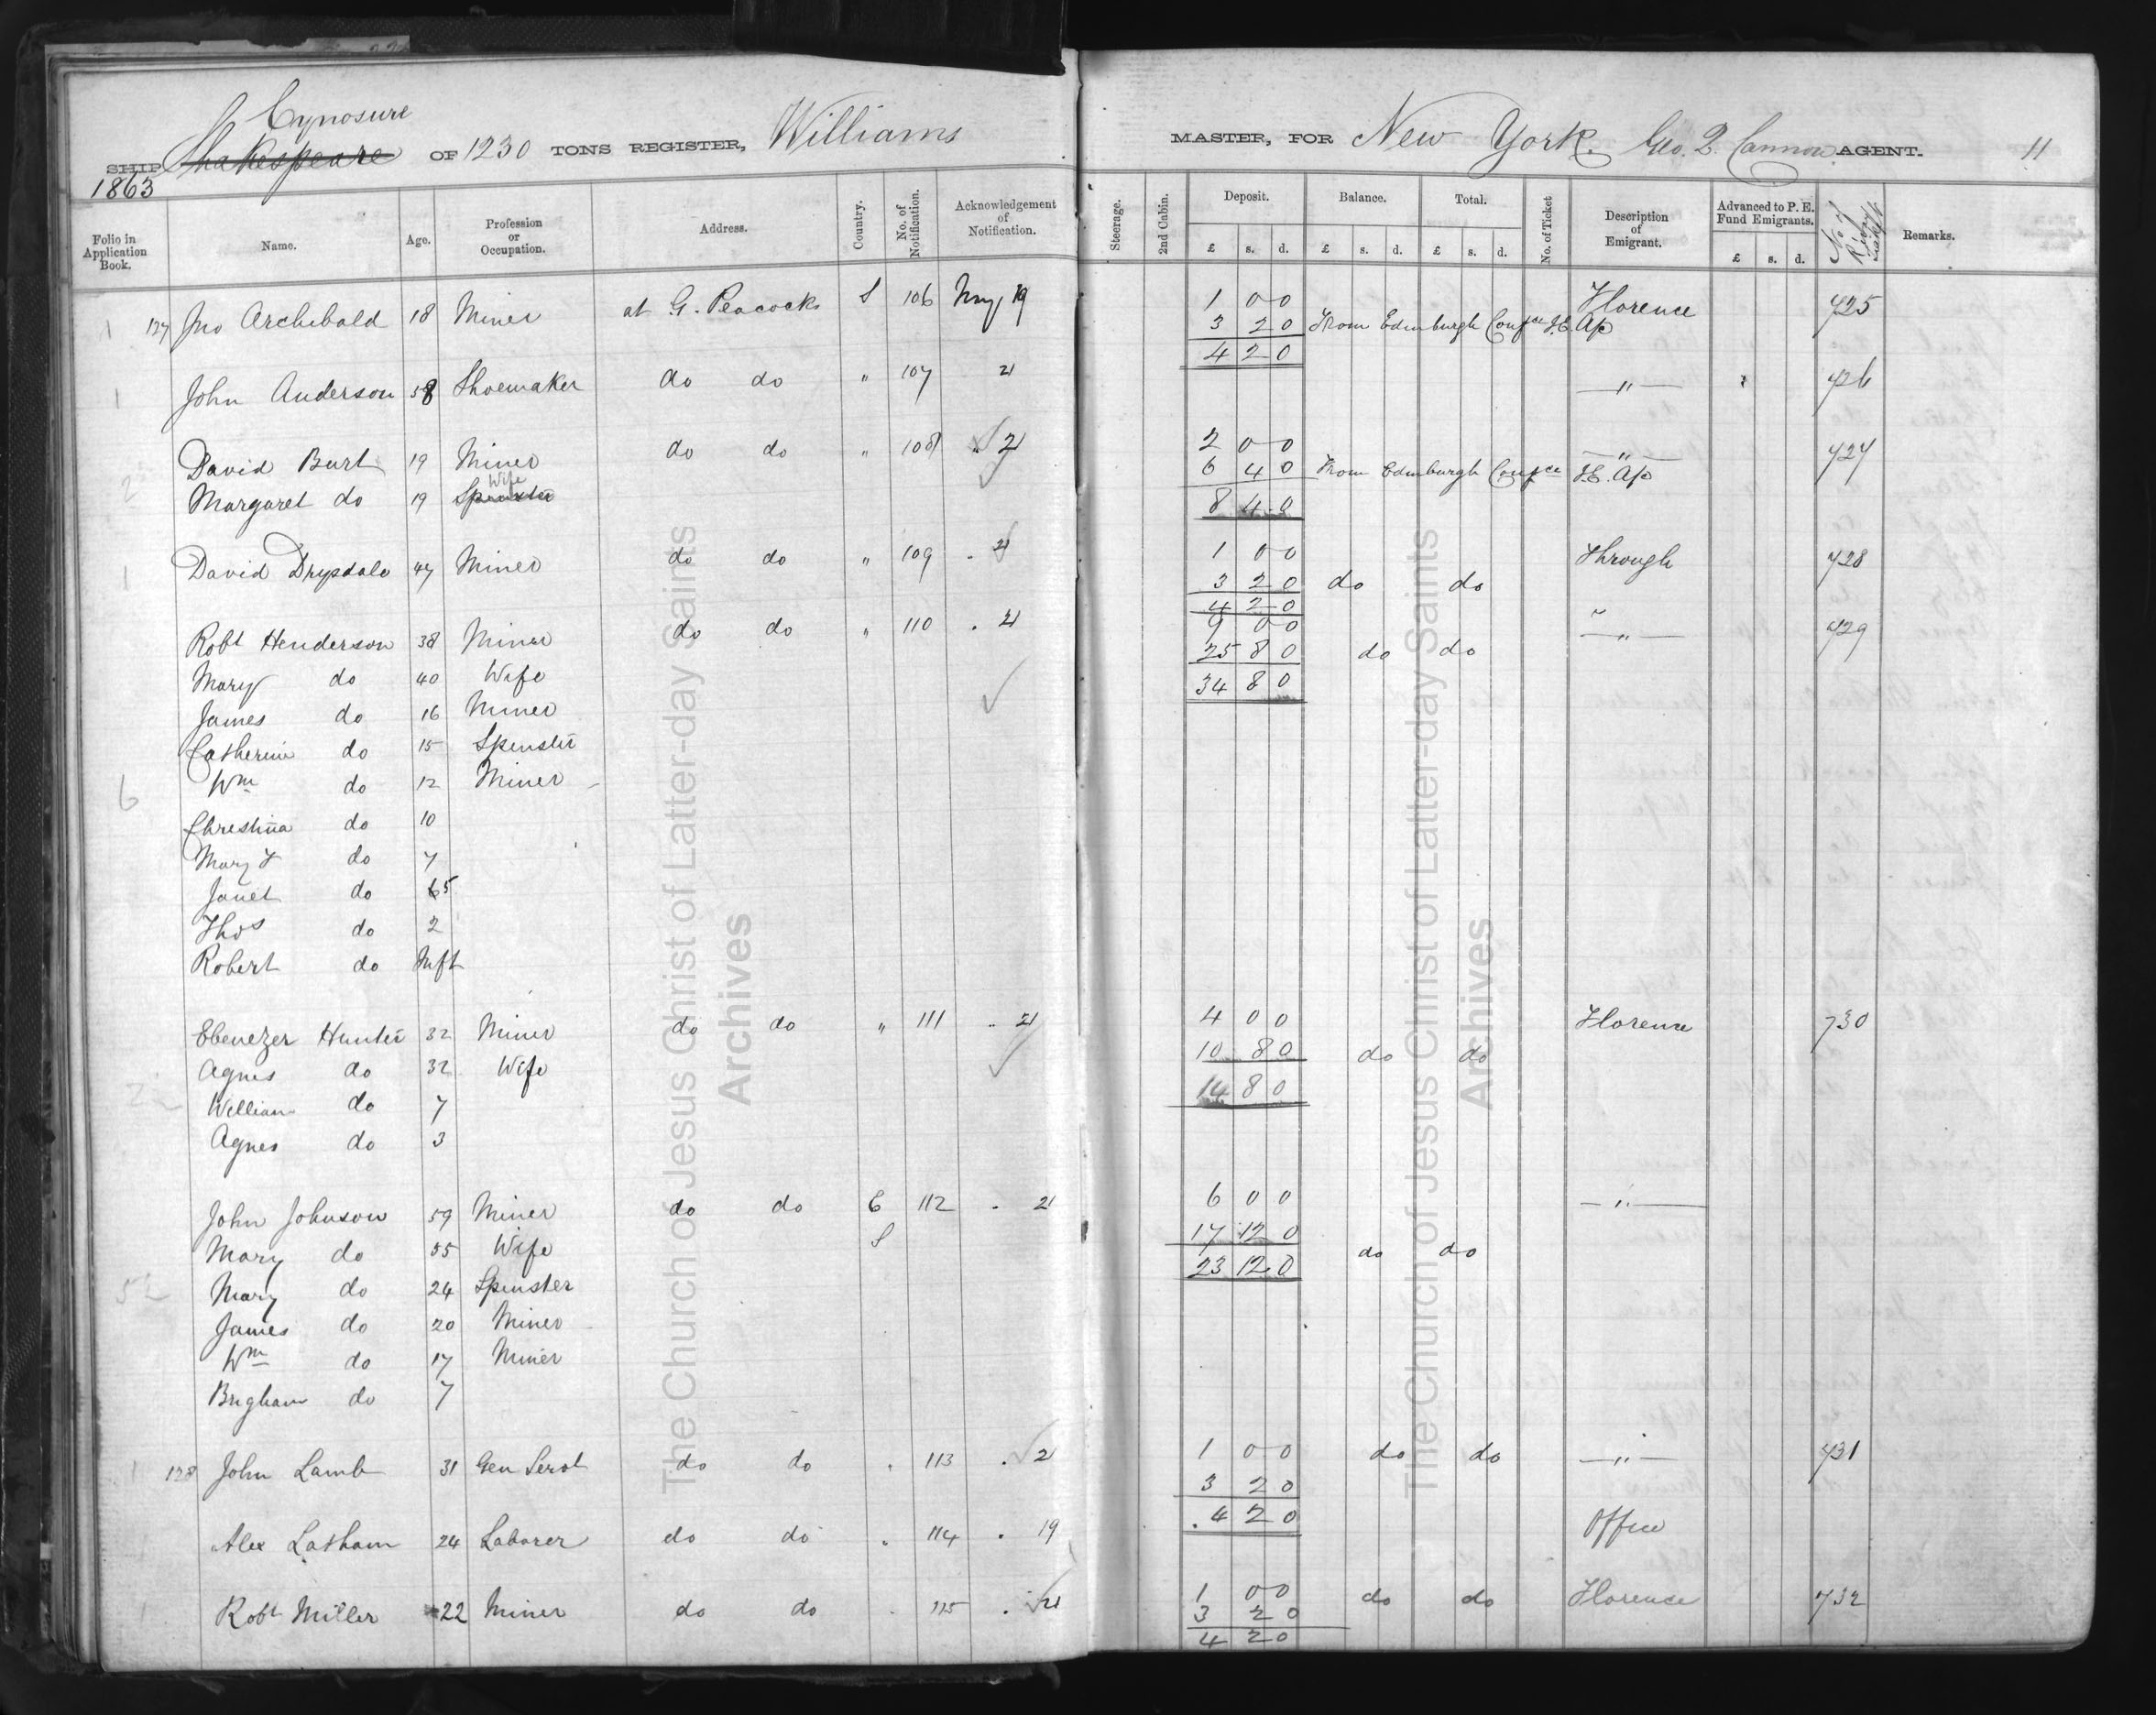 Cynosure
SHIP Shakespeare OF 1230 TONS REGISTER, Williams MASTER, FOR New York. Geo. Q. Cannon AGENT. 11
1863
Folio in Application Book. Name. Age. Profession or Occupation. Address. Country. No. of Notification. Acknowledgement of Notification. Steerage. 2nd Cabin. Deposit. Balance. Total. No. of Ticket Description of Emigrant. Advanced to P. E. Fund Emigrants. No of Remarks.
£ s. d. £ s. d. £ s. d. £ s. d.
1 127 Jno Archibald 18 Miner at G. Peacocks S 106 May 19 1 0 0 Florence 725
3 2 0 From Edinburgh Confce Ap
4 2 0
1 John Anderson 58 Shoemaker do do " 107 21 — " — 726
David Burt 19 Miner do do " 108 " 21 2 0 0 — " — 727
2 6 4 0 From Edinburgh Confce Ap
Wife
Margaret do 19 Spinster 8 4 0
1 David Drysdale 47 Miner do do " 109 . 21 1 0 0 Through 728
3 2 0 do do
4 2 0
Robt Henderson 38 Miner do do " 110 . 21 9 0 0 — " — 729
25 8 0 do do
Mary do 40 Wife 34 8 0
James do 16 Miner
Catherine do 15 Spinster
6 Wm do 12 Miner
Christina do 10
Mary do 7
Janet do 5
Thos do 2
Robert do Inft
Ebenezer Hunter 32 Miner do do " 111 . 21 4 0 0 Florence 730
Agnes do 32 Wife 10 8 0 do do
2 William do 7 14 8 0
Agnes do 3
John Johnson 59 Miner do do E 112 . 21 6 0 0 — " —
Mary do 55 Wife S 17 12 0 do do
Mary do 24 Spinster 23 12 0
James do 20 Miner
Wm do 17 Miner
Brigham do 7
1 128 John Lamb 31 Gen Servt do do . 113 . 21 1 0 0 do do — " — 731
3 2 0
4 2 0
Alex Latham 24 Laborer do do . 114 . 19 Office
Robt Miller 22 Miner do do . 115 . 21 1 0 0 do do Florence 732
3 2 0
4 2 0
The Church of Jesus Christ of Latter-day Saints
Archives
The Church of Jesus Christ of Latter-day Saints
Archives